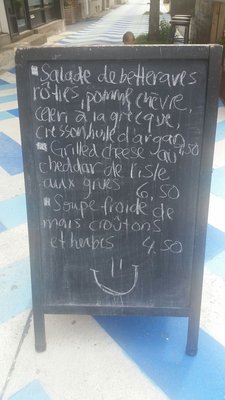 Salade de betteraves
rôties, pomme, chèvre,
celeri à la grecque,
cresson huile d'argan
7,50
Grilled cheese au
cheddar de l'isle
aux grues 6,50
Soupe froide de
mais croûtons
et herbes 4.50